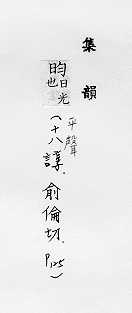 集韻
昀日光也
(平聲十八諄.俞倫切.P.125)